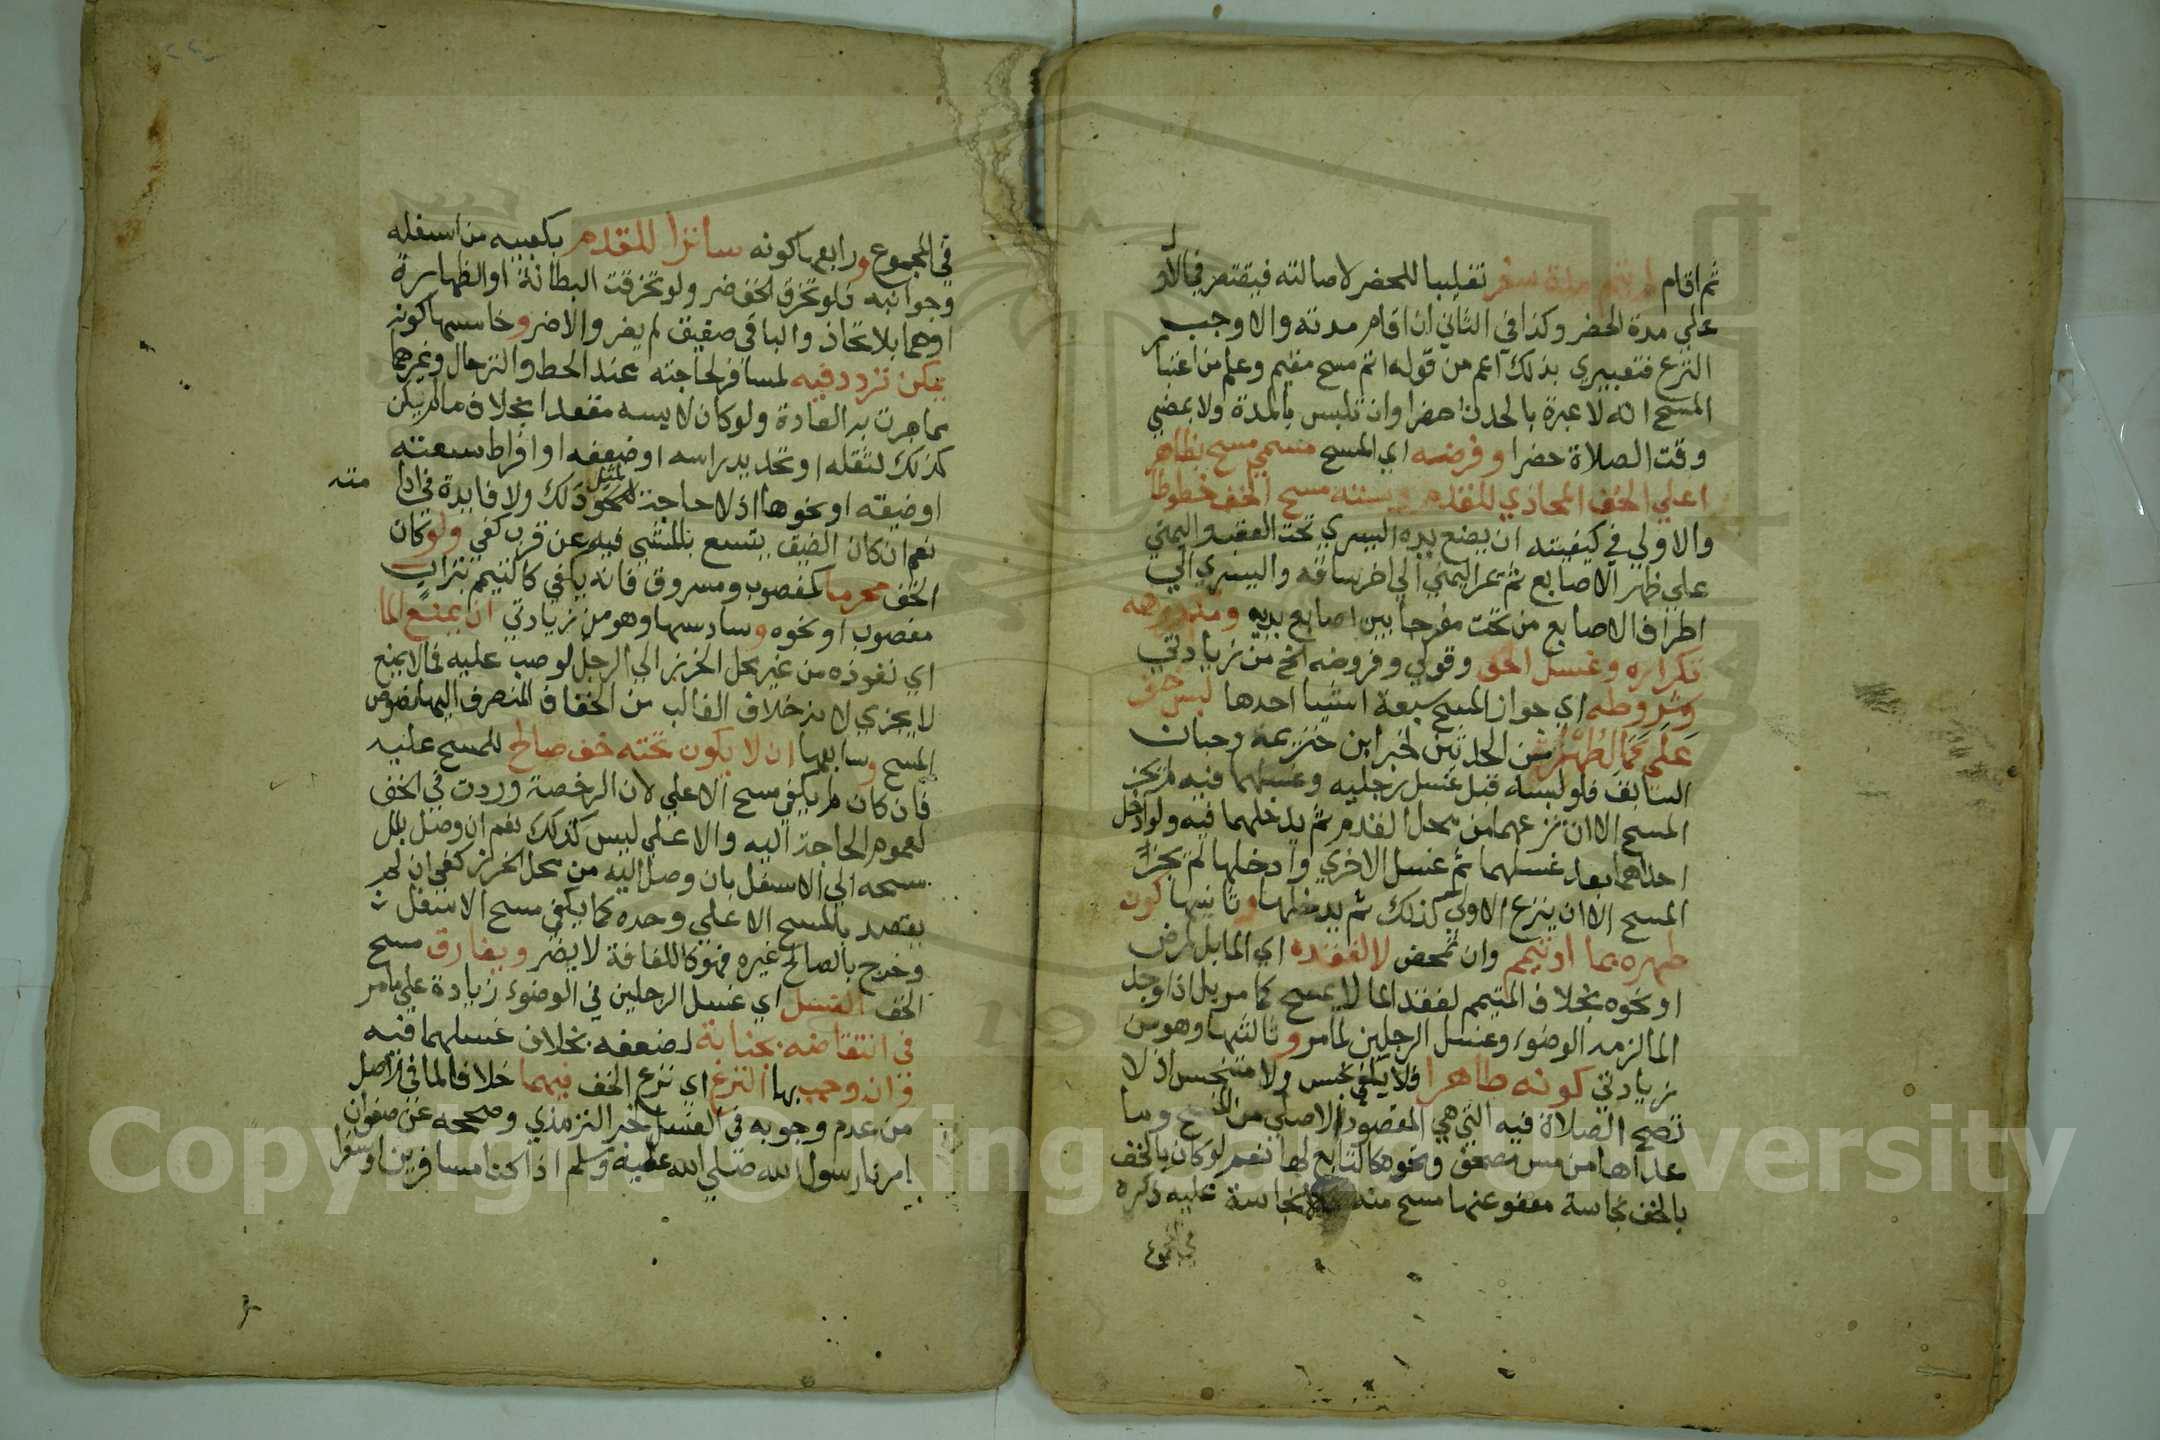 ثم اقام لم يتم مدة سفر تغليبا للحضر لاصالته فيقتصر في الاول
علي مدة الحضر وكذا في الثاني ان اقام مدته والا وجب
النزع فتعبيري بذلك اعم من قوله اتم مسح مقيم وعلم من اعتبار
المسح انه لا عبرة بالحدث حضرا وان تلبس بالمدة ولا بمضي
وقت الصلاة حضرا وفرضه اي المسح مسمي مسح بظاهر
اعلي الخف المحاذي للقدم وسنته مسح الخف خطوطا
والاولي في كيفيته ان يضع يده اليسري تحت العقب واليمني
علي ظهر الاصابع ثم يمر اليمني الي اخر ساقه واليسري الي
اطراف الاصابع من تحت مفرجا بين اصابع يديه ومكروهه
تكراره وغسل الخف وقولي وفروضه الخ من زيادتي
وشروطه اي جواز المسح سبعة اشيا احدها لبس خف
علي تمام الطهر من الحدثين لخبر ابن خزيمة وحبان
السابق فلو لبسه قبل غسل رجليه وغسلهما فيه لم يجز
المسح الا ان نزعهما من محل القدم ثم يدخلهما فيه ولو ادخل
احداهما بعد غسلهما ثم غسل الاخري وادخلها لم يجز
المسح الا ان ينزع الاولي كذلك ثم يدخلها وثانيها كون
طهره بما او تيمم وان تمحض لا لفقده اي الما بل لمرض
او نحوه بخلاف المتيمم لفقد الما لا يمسح كما مر بل اذا وجد
الما لزمه الوضوء وغسل الرجلين لما مر وثالثها وهو من
زيادتي كونه طاهرا فلا يكفي نجس ولا متنجس اذ لا
تصح الصلاة فيه التي هي المقصود الاصلي من المسح وما
عداها من مس مصحف ونحوه كالتابع لها نعم لو كان بالخف
بالخف نجاسة معفو عنها مسح منه ما لا نجاسة عليه ذكره
في المجموع
في المجموع ورابعها كونه ساترا للقدم بكعبيه من اسفله
وجوانبه فلو تخرق الخف ضر ولو تخرقت البطانة او الظهارة
او هما بلا تحاذ والباقي صفيق لم يضر والا ضر وخامسها كونه
يمكن تردد فيه لمسافر لحاجته عند الحط والترحال وغيرهما
مما جرت به العادة ولو كان لابسه مقعدا بخلاف ما لم يكن
كذلك لثقله او تحديد راسه او ضعفه او افراط سعته
او ضيقه او نحوها اذ لا حاجة لمثل ذلك ولا فايدة في ادا
مته
نعم ان كان الضيق يتسع بالمشي فيه عن قرب كفي ولو كان
الخف محرما كمغصوب ومسروق فانه يكفي كالتيمم بتراب
مغصوب او نحوه وسادسها وهو من زيادتي ان يمنع الما
اي نفوذه من غير محل الخرز الي الرجل لو صب عليه فما لا يمنع
لا يجزي لانه خلاف الغالب من الخفاف المنصرف اليها نصوص
المسح وسابعها ان لا يكون تحته خف صالح للمسح عليه
فان كان لم يكفي مسح الاعلي لان الرخصة وردت في الخف
لعموم الحاجة اليه والاعلي ليس كذلك نعم ان وصل بلل
مسحه الي الاسفل بان وصل اليه من محل الخرز كفي ان لم
يقصد بالمسح الاعلي وحده كما يكفي مسح الاسفل
وخرج بالصالح غيره فهو كاللفافة لا يضر ويفارق مسح
الخف الغسل اي غسل الرجلين في الوضوء زيادة علي ما مر
في انتقاضه بجنابة لضعفه بخلاف غسلهما فيه
فانه وجب بها النزع اي نزع الخف فيهما خلافا لما في الاصل
من عدم وجوبه في الغسل لخبر الترمذي وصححه عن صفوان
امرنا رسول الله صلي الله عليه وسلم اذا كنا مسافرين او سفرا
Copyright © King Saud University